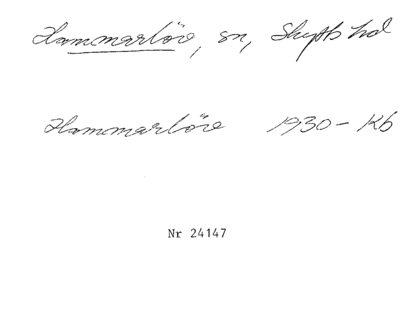 Hammarlöv, sn, Skytts hd
Hammarlöv 1930- Kb
Nr 24147